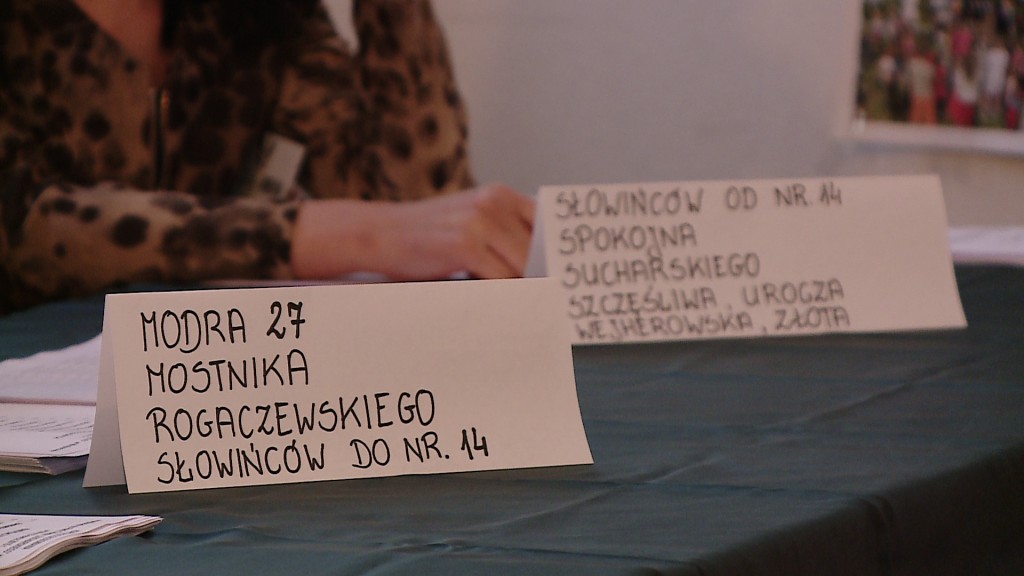 MODRA 27
MOSTNIKA
ROGACZEWSKIEGO
SŁOWIŃCÓW DO NR. 14
SŁOWIŃCÓW OD NR. 14
SPOKOJNA
SUCHARSKIEGO
SZCZĘŚLIWA, UROCZA
WEJHEROWSKA, ZŁOTA